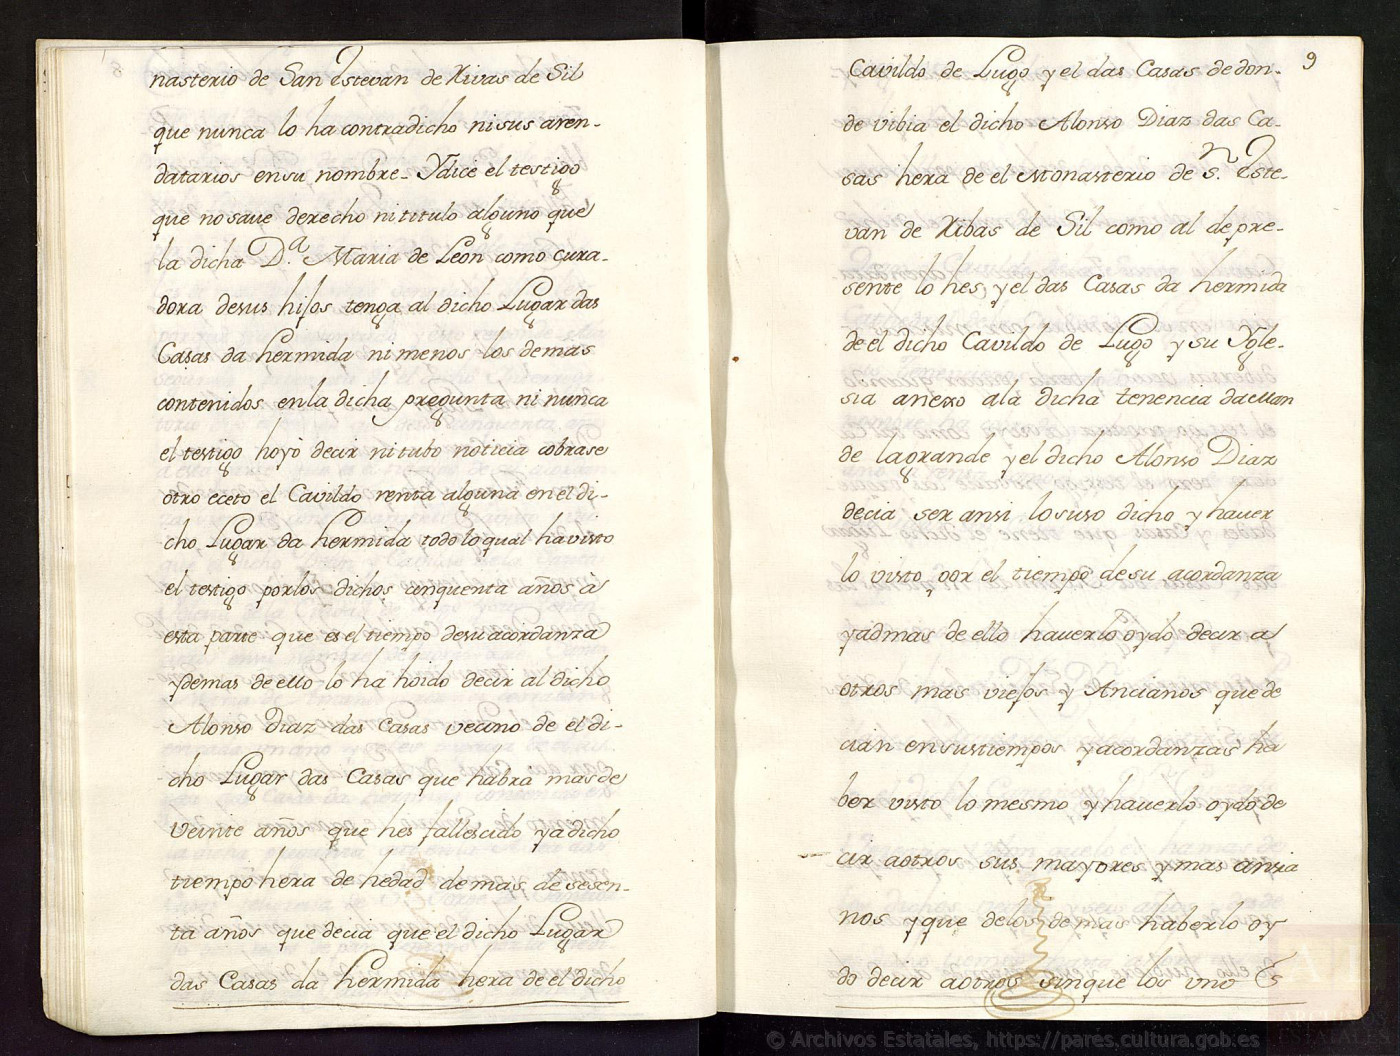 nasterio de San Estevan de Rivas de Sil
que nunca lo ha contradicho ni sus aren-
datarios en su nombre- Y dice el testigo
que no save derecho ni titulo alguno que
la dicha D.ª Maria de Leon como cura-
dora de sus hijos tenga al dicho Lugar das
Casas da hermida ni menos los demas
contenidos en la dicha pregunta ni nunca
el testigo hoyò decir ni tubo noticia cobrase
otro eceto el Cavildo renta alguna en el di-
cho Lugar da hermida todo lo qual ha visto
el testigo por los dichos cinquenta años à
esta parte que es el tiempo de su acordanza
y demas de ello lo ha hoido decir al dicho
Alonso Diaz das Casas vecino de el di-
cho Lugar das Casas que habra mas de
veinte años que hes fallescido y a dicho
tiempo hera de hedad de mas de sesen-
ta años que decia que el dicho Lugar
das Casas da hermida hera de el dicho
9
Cavildo de Lugo y el das Casas de don-
de vibia el dicho Alonso Diaz das Ca-
sas hera de el Monasterio de S.n Este-
van de Ribas de Sil como al de pre-
sente lo hes, y el das Casas da hermida
de el dicho Cavildo de Lugo y su Ygle-
sia anexo a la dicha tenencia da Man
de la grande y el dicho Alonso Diaz
decia ser ansi lo suso dicho y haver
lo visto por el tiempo de su acordanza
y admas de ello haverlo oydo decir a
otros mas viejos y Ancianos que de
cian en sus tiempos y acordanzas ha
ber visto lo mesmo y haverlo oydo de
cir a otros sus mayores y mas ancia
nos y que de los demas haberlo oy
do decir a otros sin que los uno s
© Archivos Estatales, https://pares.cultura.gob.es